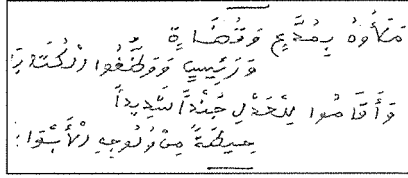 مَلَأُوهُ بِمُدَّعٍ وَقُضَاةٍ
وَرَئِيسٍ وَوَظَّفُوا الْكُتَّابَ
وَأَقَامُوا لِلْعَدْلِ جُنْدًا شَدِيدًا
حِيطَةً مِنْ وُلُوجِهِ الْأَبْوَابَ